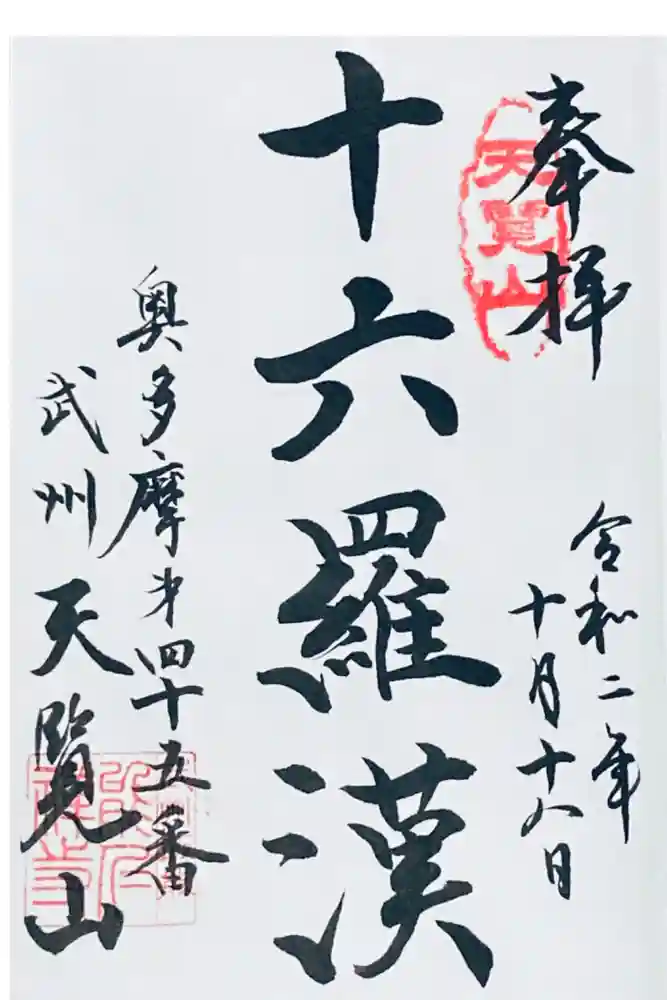 奉拝
天覧山
令和二年
十月十八日
十六羅漢
奥多摩㐧四十五番
武州天覧山